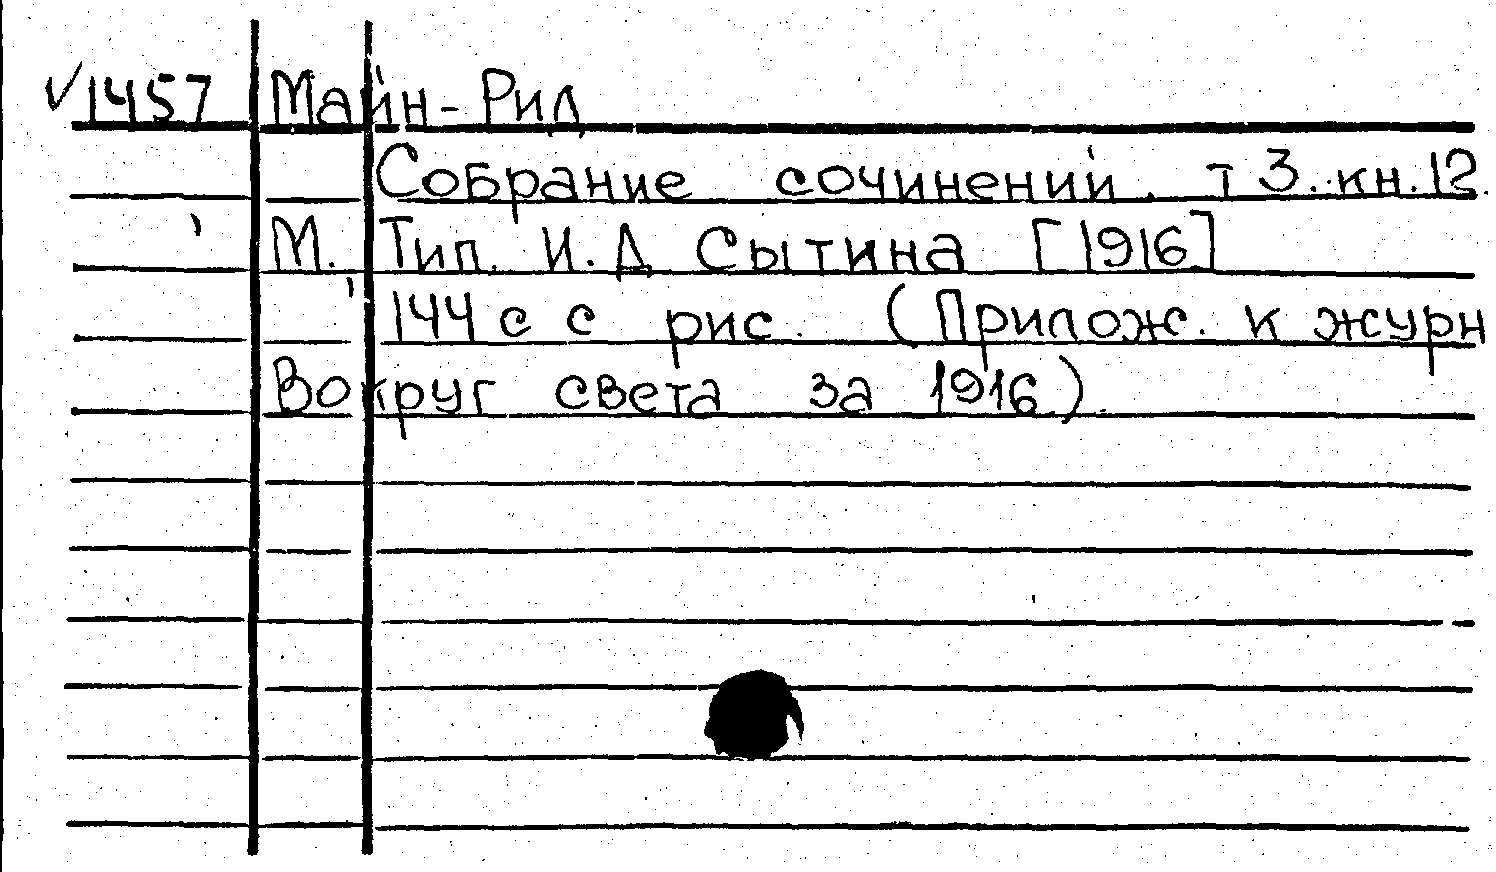 ✓1457 Майн-Рид
Собрание сочинений. т 3. кн. 12.
М. Тип. И.Д Сытина [1916]
144 с с рис. (Прилож. к журн
Вокруг света за 1916).